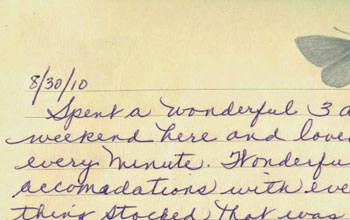 8/30/10
Spent a wonderful 3 a
weekend here and love
every minute. Wonderfu
accomadations with eve
thing stocked that was